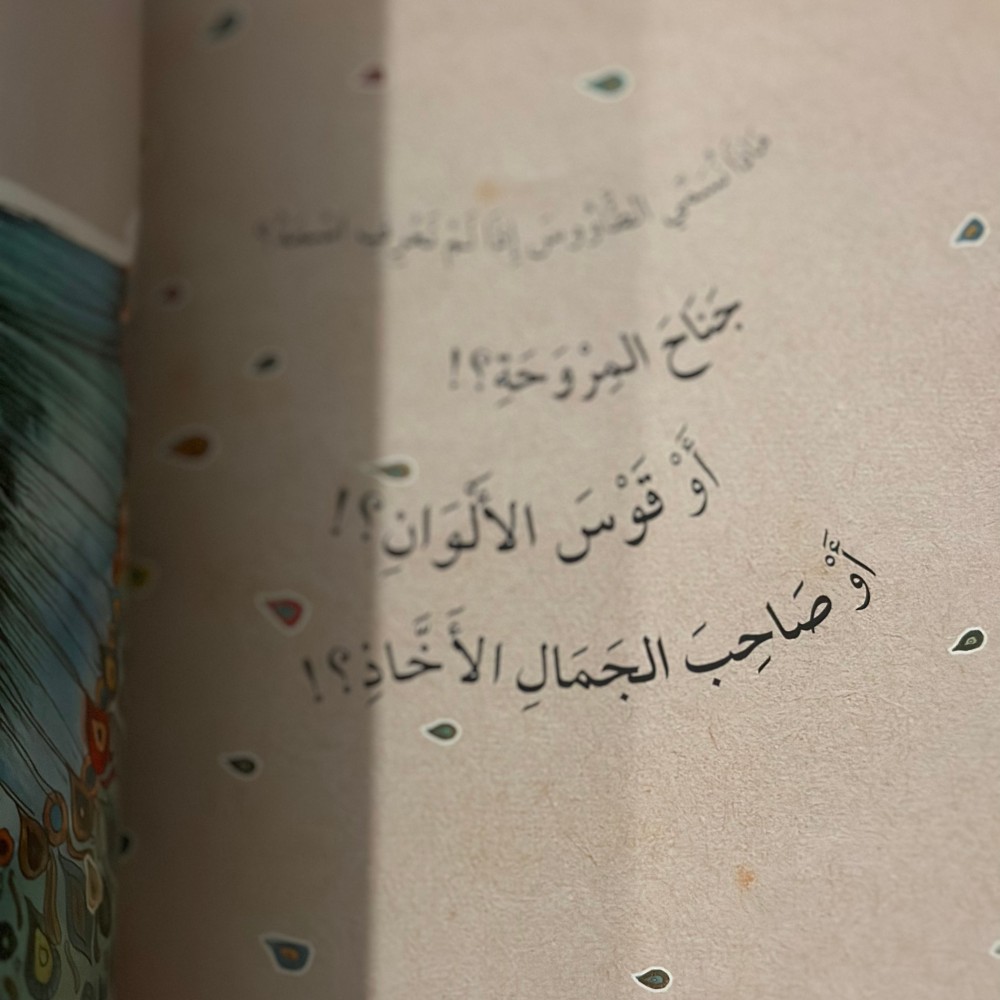 ماذا نُسَمِّي الطَّاوُوسَ إِذَا لَمْ نَعْرِفِ اسْمَهُ؟
جَنَاحَ المِرْوَحَةِ؟!
أَوْ قَوْسَ الأَلْوَانِ؟!
أَوْ صَاحِبَ الجَمَالِ الأَخَّاذِ؟!